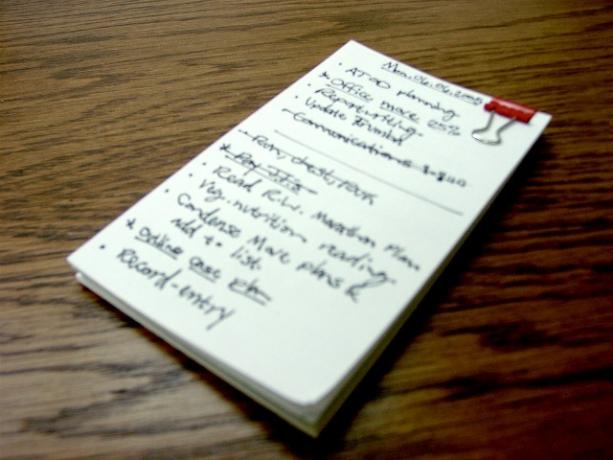 Mon. 06.06.2005
• ATOD planning
* Office move 25%
• Reportwriting
• Update
– Communications
– Run, chest,
* Pay
• Read R.W. Marathon Plan
• Veg. nutrition reading.
• Condense Move plans &
Add to list.
* Online
• Record-entry